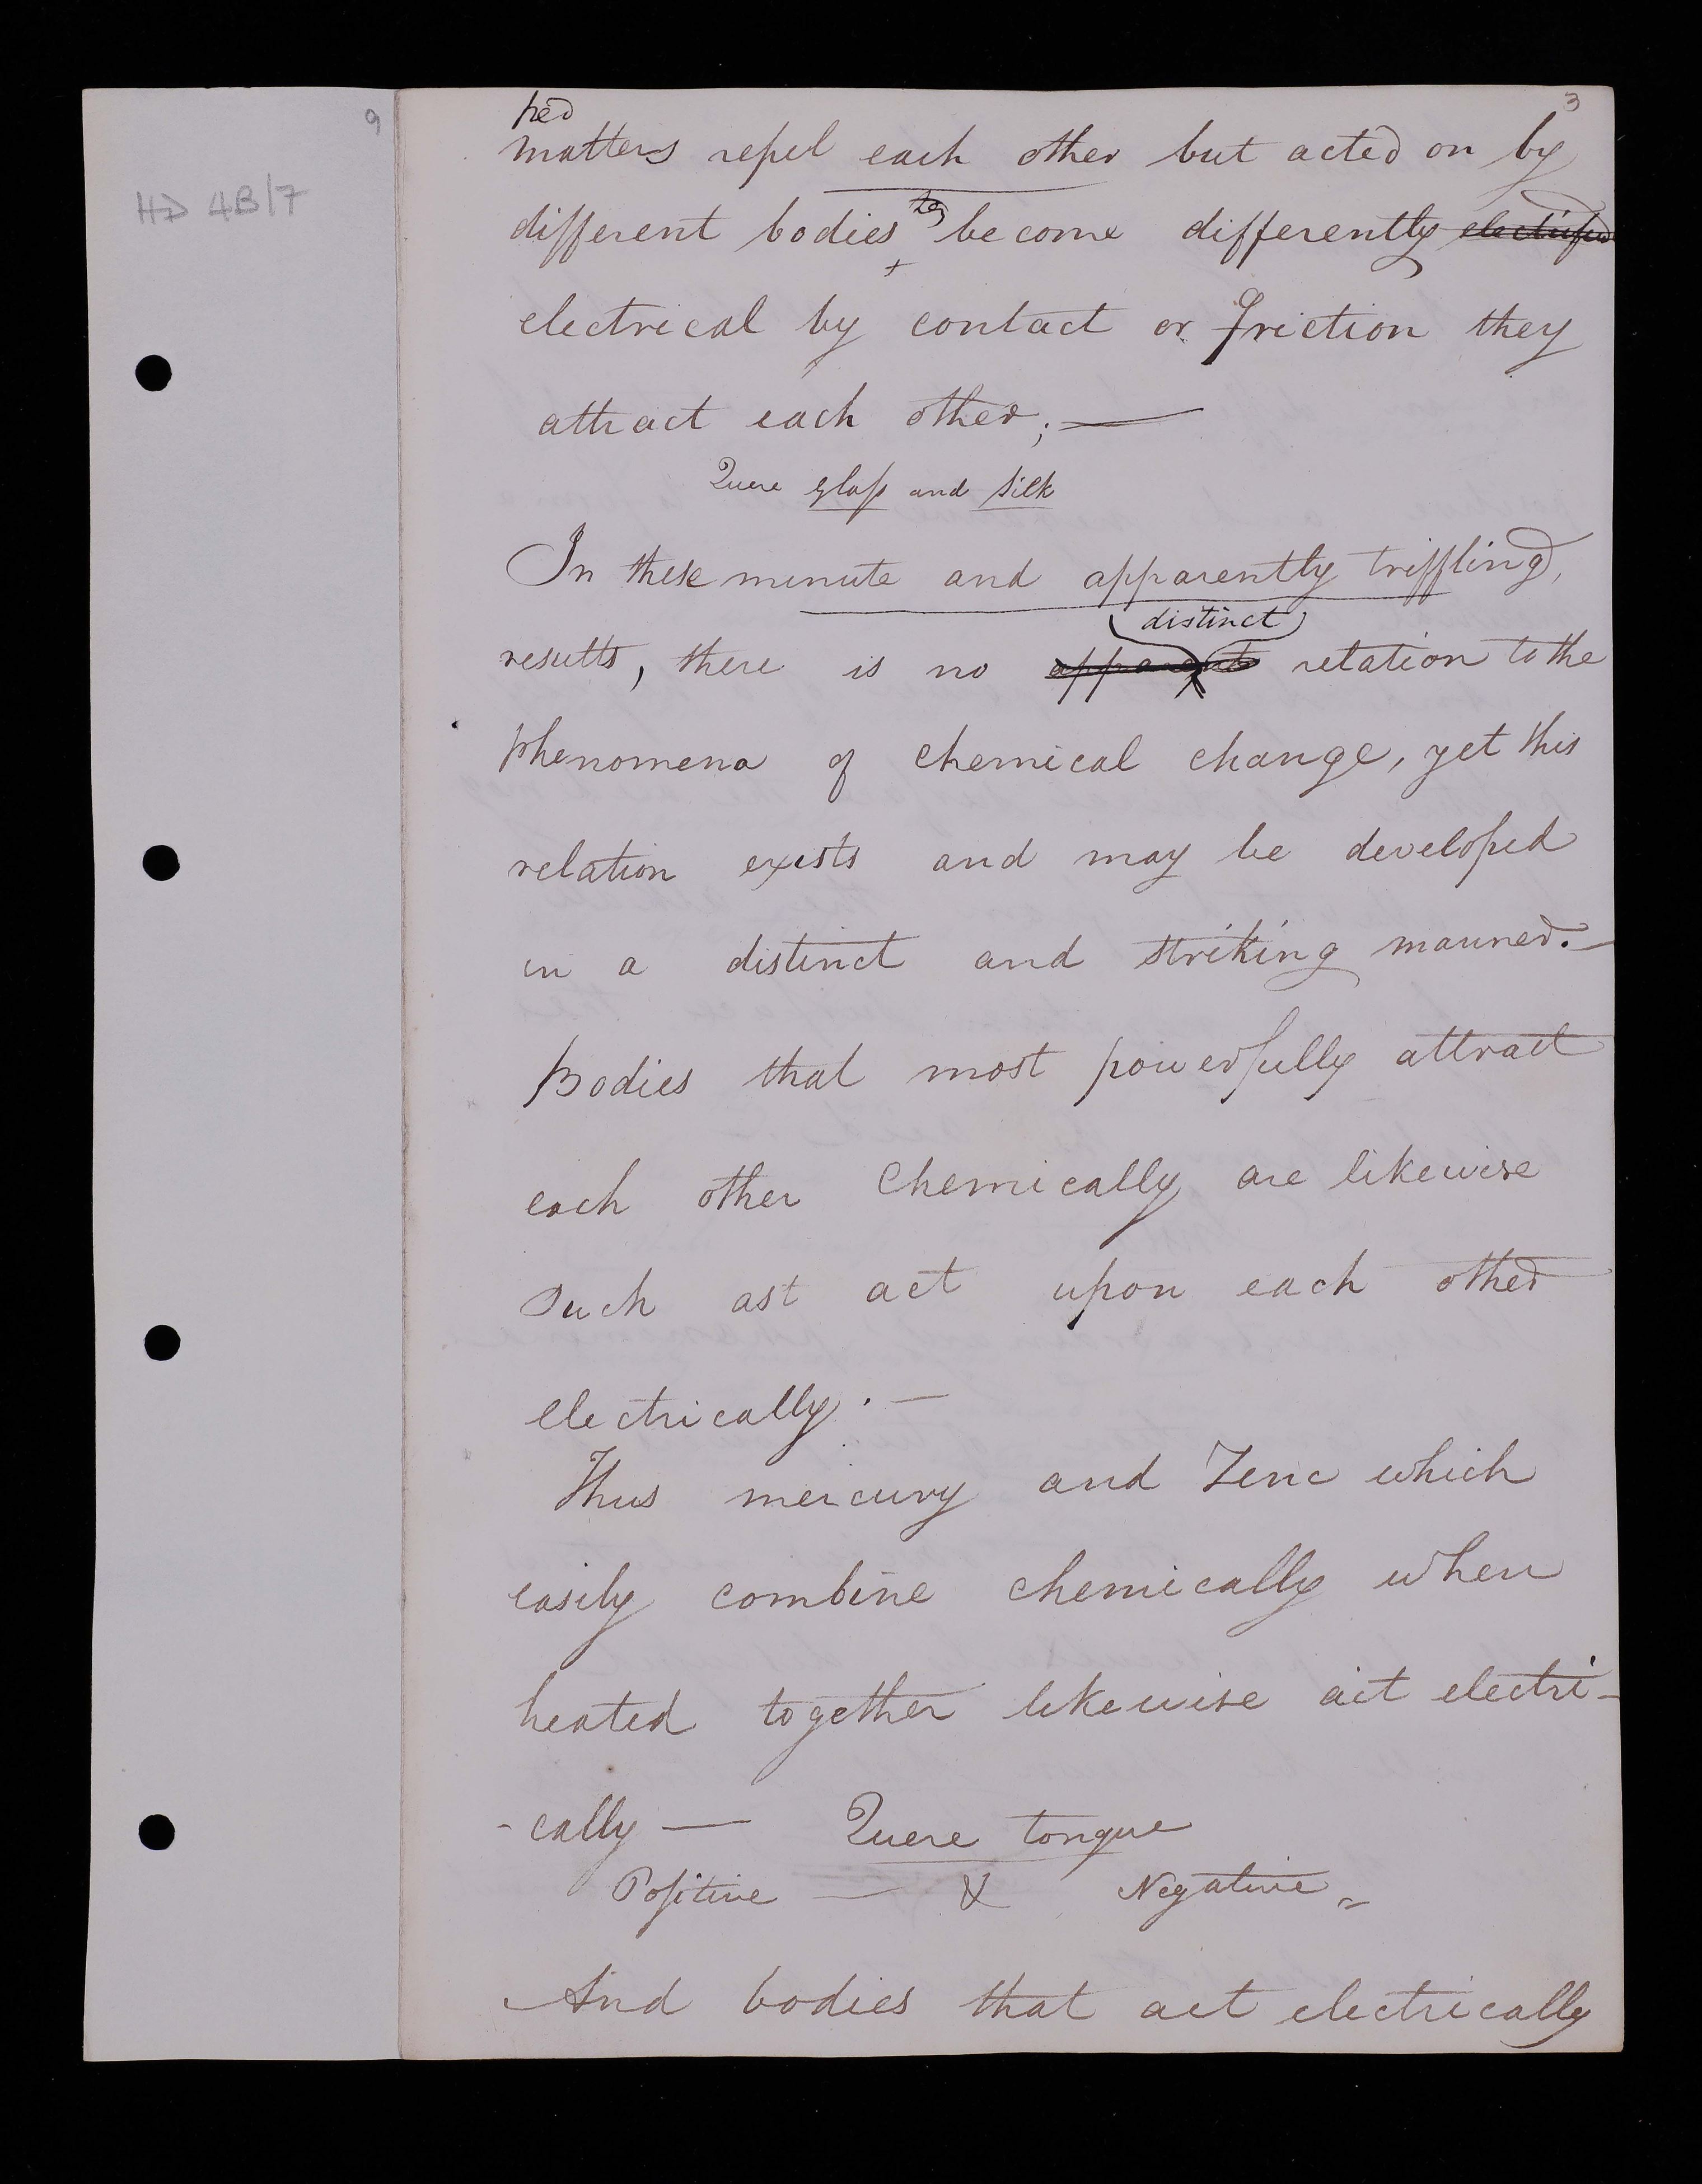 9
3
HD 4B/7
matters repel each other but acted on by
different bodies become differently electrified
electrical by contact or friction they
attract each other; —
Quere glass and silk
In these minute and apparently triffling,
distinct
results, there is no apparent relation to the
phenomena of chemical change, yet this
relation exists and may be developed
in a distinct and striking manner. —
Bodies that most powerfully attract
each other Chemically are likewise
Such ast act upon each other
electrically. —
Thus mercury and Zinc which
easily combine chemically when
heated together likewise act electri-
-cally — Quere tongue
Positive — & Negative
And bodies that act electrically